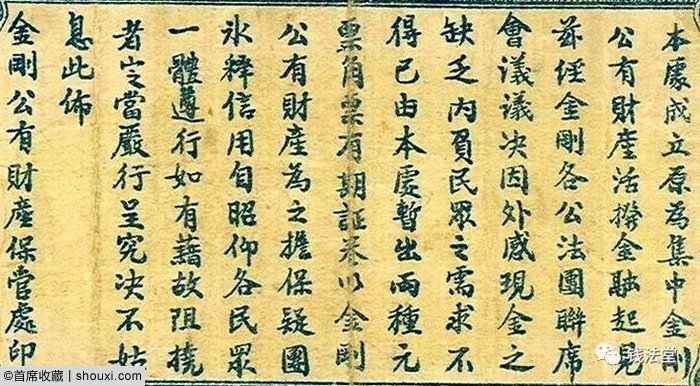 本處成立原為集中金剛
公有財産活撥金融起見
茲經金剛各公法團聯席
會議議决因外感現金之
缺乏内負民眾之需求不
得已由本處暫出兩種元
票角票有期証券以金剛
公有財産為之擔保疑團
氷釋信用自昭仰各民眾
一體遵行如有藉故阻撓
者定當嚴行呈究决不姑
息此佈
金剛公有財產保管處印
©首席收藏 | shouxi.com
钱法堂